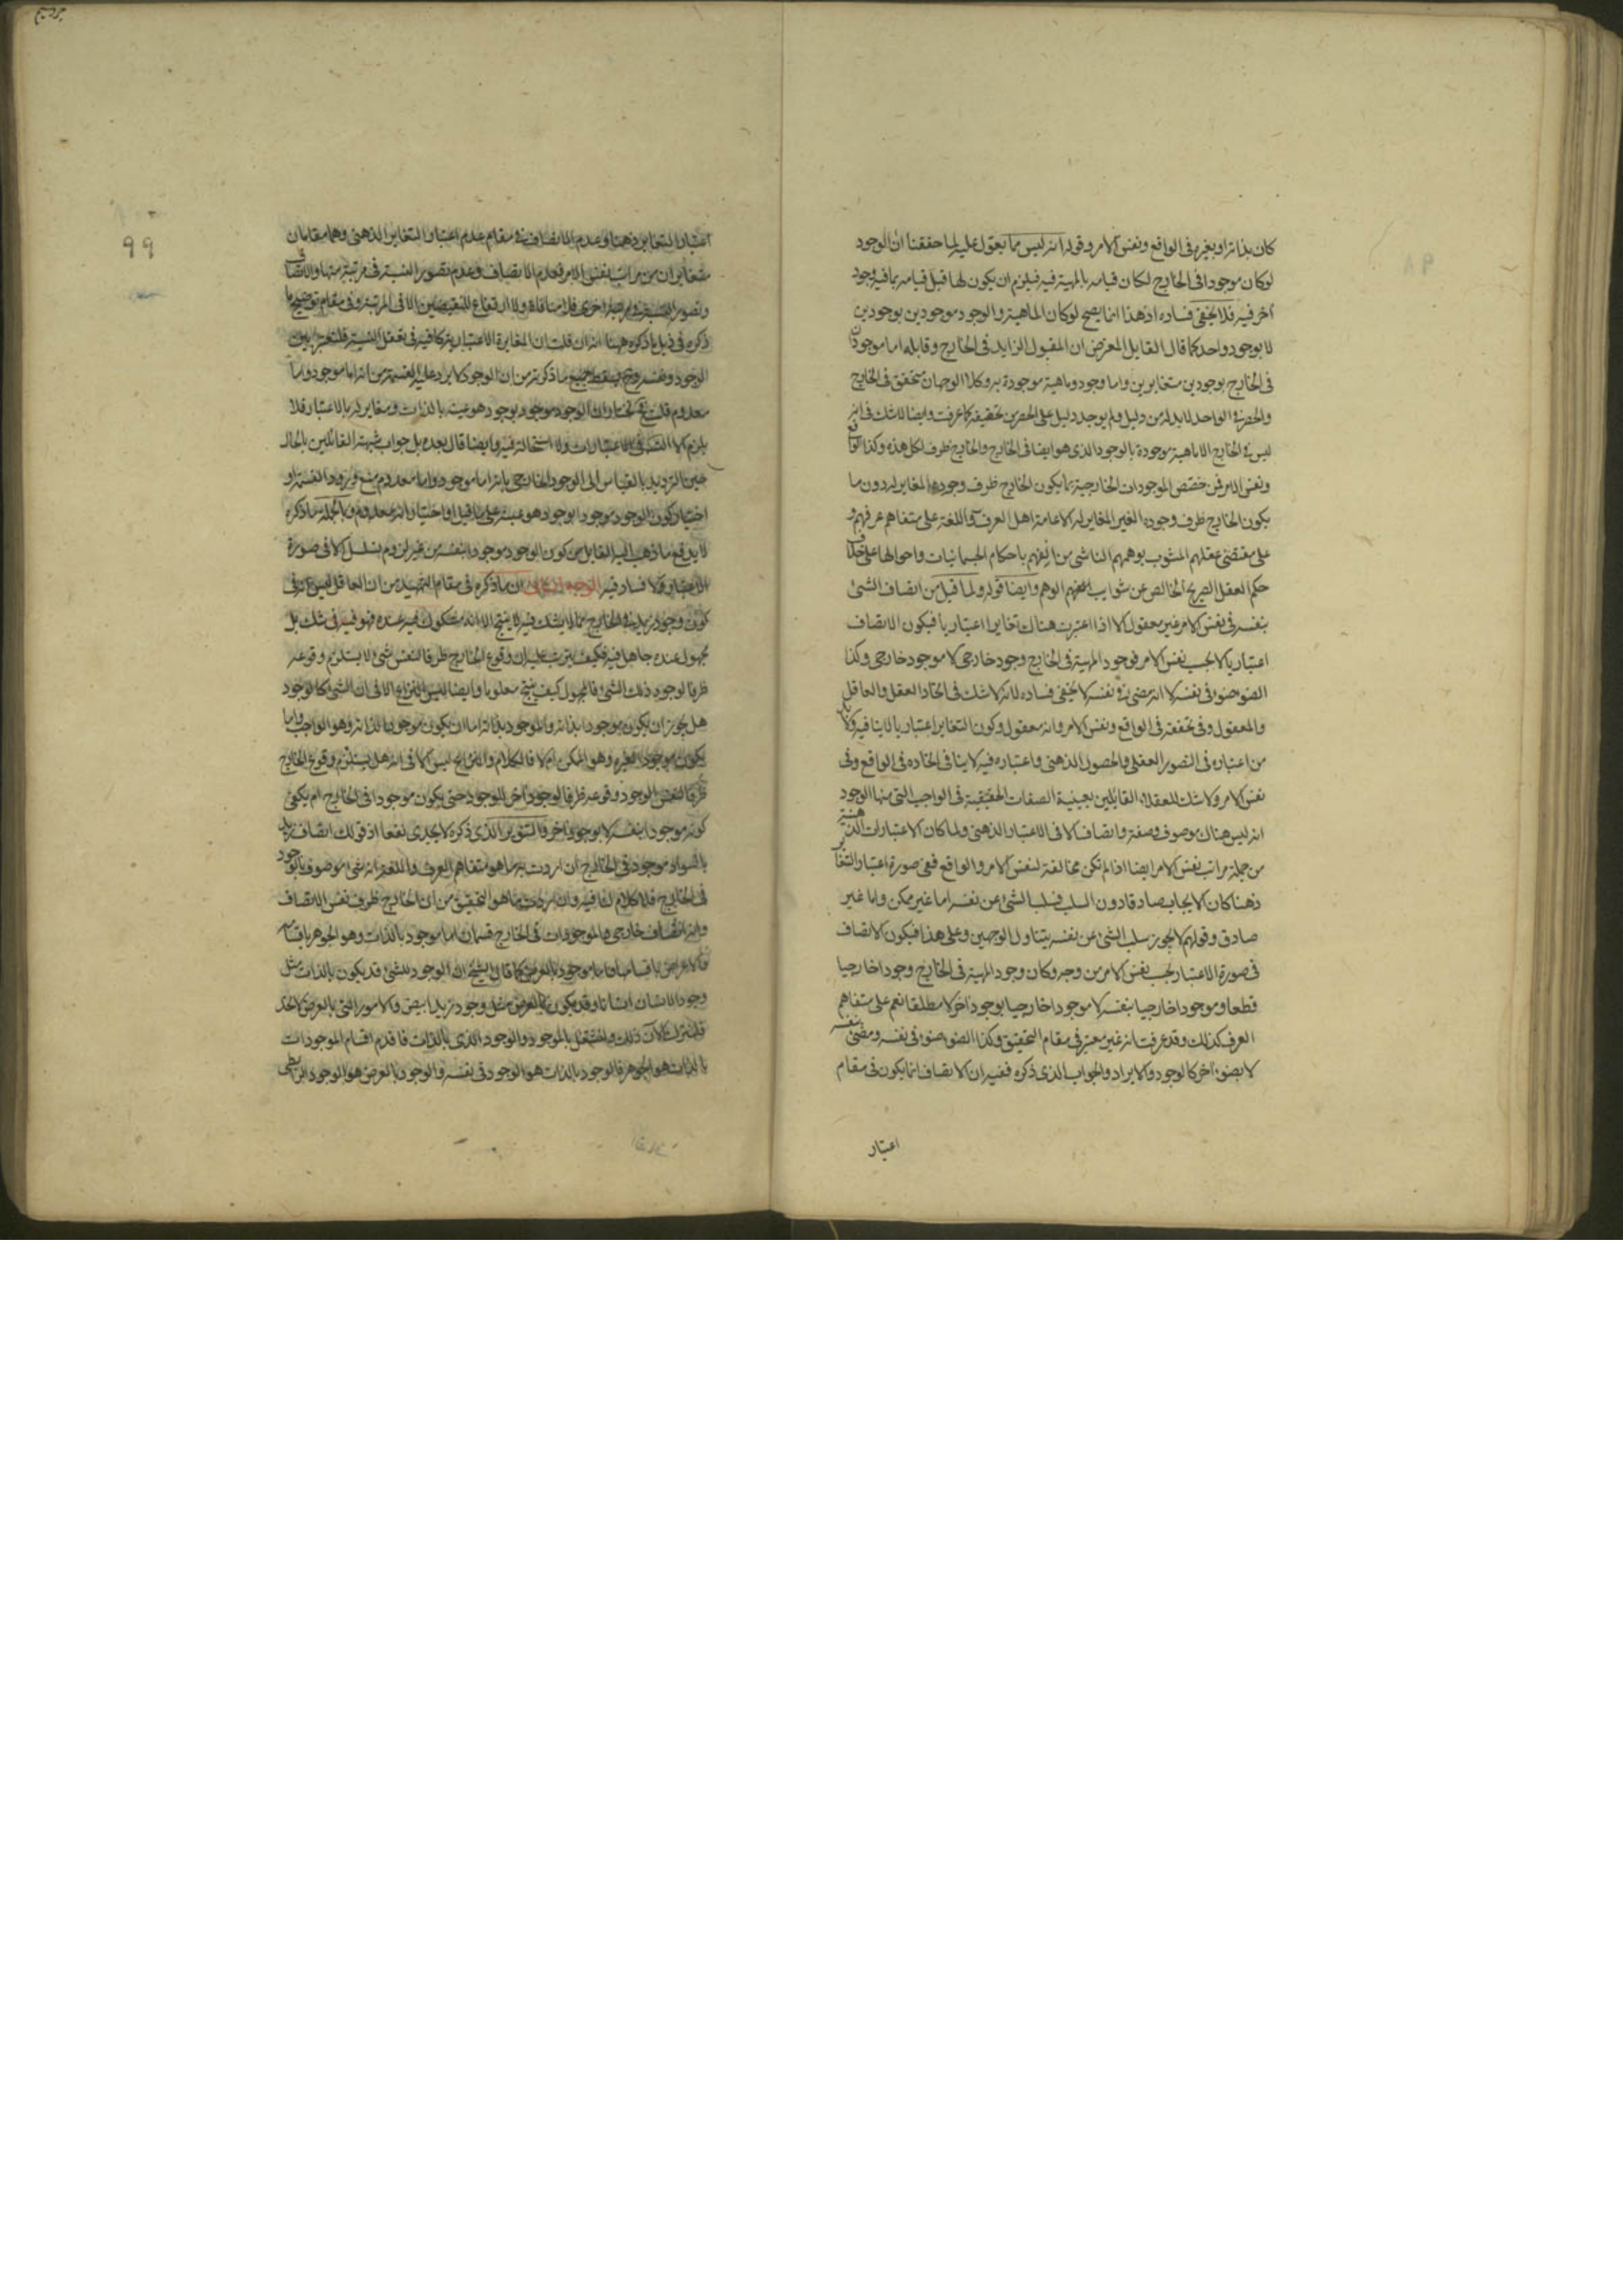 كان بذاته او بغيره فى الواقع ونفس الامر وقوله انه ليس مما يعول عليه لما حققنا ان الوجود
لو كان موجودا فى الخارج لكان قيامه بالمهية فيه فيلزم ان يكون لها قبل قيامه بها فيه وجود
آخر فيه فلا يخفى فساده اذ هذا انما يصح لو كان الماهية والوجود موجودين بوجودين
لا بوجود واحد كما قال القايل المعترض ان المقبول الزايد فى الخارج وقابله اما موجودان
فى الخارج بوجودين متغايرين واما وجود وماهية موجودة به وكلا الوجهان متحقق فى الخارج
والحصر فى الواحد لابد له من دليل ولم يوجد دليل على الحصر بل تحقيقه كما عرفت وايضا لا شك فى انه
ليس فى الخارج الا ماهية موجودة بالوجود الذى هو ايضا فى الخارج والخارج ظرف لكل هذه وكذا الواقع
ونفس الامر فمن خصص الموجودات الخارجية بما يكون الخارج ظرف وجوده المغاير له دون ما
يكون الخارج ظرف وجوده الغير المغاير له كالعامة اهل العرف واللغة على متفاهم عرفهم و
على مقتضى عقلهم المشوب بوهمهم الناشى من الفهم باحكام الجسمانيات واحوالها على خلاف
حكم العقل الصريح الخالص عن شوايب الوهم وايضا قوله ولما قيل من اتصاف الشئ
بنفسه فى نفس الامر غير معقول الا اذا اعتبرت هناك تغايرا اعتباريا فيكون الاتصاف
اعتباريا لا بحسب نفس الامر فوجود المهية فى الخارج وجود خارجى لا موجود خارجى وكذا
الضوء ضوء فى نفسه لا انه مضئ فى نفسه لا يخفى فساده لانه لا شك فى اتحاد العقل والعاقل
والمعقول وفى تحققه فى الواقع ونفس الامر وانه معقول وكون التغاير اعتباريا لا ينافيه
من اعتباره فى التصور العقلى والحصول الذهنى واعتباره فيه لا ينافى اتحاده فى الواقع وفى
نفس الامر ولا شك للعقلاء القايلين بعينية الصفات الحقيقية فى الواجب التى منها الوجود
انه ليس هناك موصوف وصفة واتصاف الا فى الاعتبار الذهنى ولما كان الاعتبارات الذهنية
من جملة مراتب نفس الامر ايضا اذا لم تكن مخالفة لنفس الامر والواقع ففى صورة اعتبار التغاير
ذهنا كان الايجاب صادقا دون السلب فسلب الشئ عن نفسه اما غير ممكن واما غير
صادق وقولهم لا يجوز سلب الشئ عن نفسه يتناول الوجهين وعلى هذا فيكون الاتصاف
فى صورة الاعتبار بحسب نفس الامر من وجه وكان وجود المهية فى الخارج وجودا خارجيا
قطعا وموجودا خارجيا بنفسه لا موجودا خارجيا بوجود آخر لا مطلقا نعم على متفاهم
العرف كذلك وقد عرفت انه غير معتبر فى مقام التحقيق وكذا الضوء ضوء فى نفسه ومضئ بنفسه
لا بضوء آخر كالوجود والايراد والجواب الذى ذكره ففيه ان الاتصاف انما يكون فى مقام
اعتبار
99
اعتبار التغاير ذهنا وعدم الاتصاف فى مقام عدم اعتبار التغاير الذهنى وهما مقامان
متغايران من مراتب نفس الامر فعدم الاتصاف وعدم تصور النسبة فى مرتبة منها والاتصاف
وتصور النسبة فى مرتبة اخرى فلا منافاة ولا ارتفاع للنقيضين الا فى المرتبة وفى مقام توضيح ما
ذكره فى ذيل ما ذكره ههنا انه ان قلت ان المغايرة الاعتبارية كافية فى تعقل النسبة فلتعتبر بين
الوجود ونفسه وح يسقط جميع ما ذكرته من ان الوجود لا يرد عليه القسمة من انه اما موجود واما
معدوم قلت فح نختار ان الوجود موجود بوجود هو عينه بالذات ومغاير له بالاعتبار فلا
يلزم الا التسلسل فى الاعتبارات ولا استحالة فيه وايضا قال بعده بل جواب شبهة القائلين بالحال
حين الترديد بالقياس الى الوجود الخارجى بانه اما موجود واما معدوم منع ورود القسمة او
اختيار كون الوجود موجودا بوجود هو عينه على ما قيل او اختيار انه معدوم وبالجملة ما ذكره
لا يدفع ما ذهب اليه القايل من كون الوجود موجودا بنفسه من غير لزوم تسلسل الا فى صورة
الاعتبار ولا فساد فيه الوجه ان ما ذكره فى مقام التمهيد من ان العاقل ليس له فى
كون وجود زيد فى الخارج مما لا يشك فيه لا ينتج الا انه مشكوك فيه عنده فهو فيه فى شك بل
مجهول عنده جاهل فيه فكيف يترتب عليه ان وقوع الخارج ظرفا لنفس شئ لا يستلزم وقوعه
ظرفا لوجود ذلك الشئ فالمجهول كيف ينتج معلوما وايضا ليس النزاع الا فى ان الشئ كالوجود
هل يجوز ان يكون موجودا بذاته والموجود بذاته اما ان يكون موجودا لذاته وهو الواجب واما
يكون موجودا لغيره وهو الممكن ام لا فالكلام والنزاع ليس الا فى انه هل يستلزم وقوع الخارج
ظرفا لنفس الوجود وقوعه ظرفا لوجود آخر للوجود حتى يكون موجودا فى الخارج ام يكفى
كونه موجودا بنفسه لا بوجود آخر فالتنوير الذى ذكره لا يجدى نفعا اذ قولك اتصاف زيد
بالسواد موجود فى الخارج ان اردت به ما هو متفاهم العرف واللغة انه شئ موصوف بالوجود
فى الخارج فلا كلام لنا فيه وان اردت ما هو التحقيق من ان الخارج ظرف نفس الاتصاف
وانه اتصاف خارجى فالموجودات فى الخارج قسمان اما موجود بالذات وهو الجوهر باقسامه
والاعراض باقسامها واما موجود بالعرض كما قال الشيخ ان الوجود للشئ قد يكون بالذات مثل
وجود الانسان انسانا وقد يكون بالعرض مثل وجود زيد ابيض والامور التى بالعرض لا تحد
فلنترك الآن ذلك ولنشتغل بالموجود والوجود الذى بالذات فاقدم اقسام الموجودات
بالذات هو الجوهر فالوجود بالذات هو الوجود فى نفسه والوجود بالعرض هو الوجود الرابطى